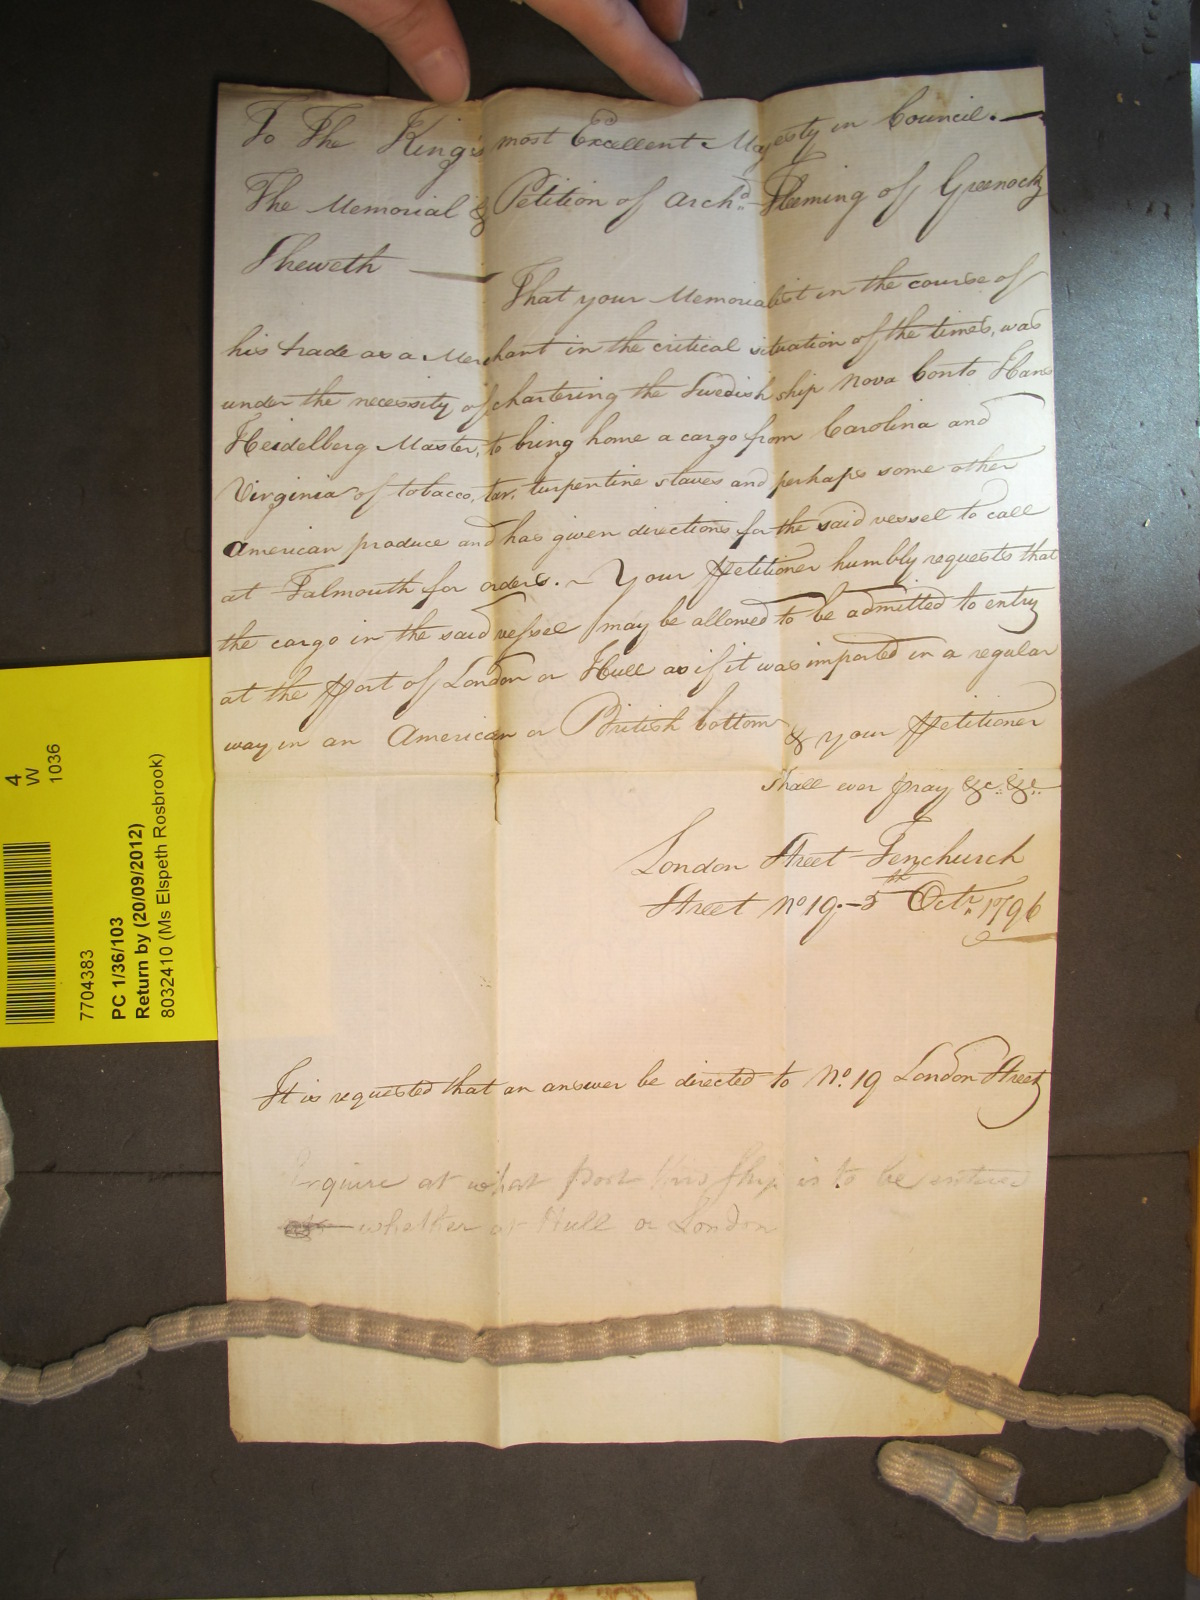 To The King's most Excellent Majesty in Council. —
The Memorial & Petition of Archd. Fleming of Greenock
Sheweth —
That your Memorialist in the course of
his trade as a Merchant in the critical situation of the times, was
under the necessity of chartering the Swedish ship Nova Conto Hans
Heidelberg Master, to bring home a cargo from Carolina and
Virginia of tobacco, tar, turpentine staves and perhaps some other
American produce and has given directions for the said vessel to call
at Falmouth for orders. ~ Your Petitioner humbly requests that
the cargo in the said vessel may be allowed to be admitted to entry
at the Port of London or Hull as if it was imported in a regular
way in an American or British bottom & your Petitioner
shall ever pray &c. &c.
London Street Fenchurch
Street No 19. - 5th Octr. 1796
It is requested that an answer be directed to No. 19 London Street
Enquire at what port this Ship is to be entered
whether at Hull or London
4
W
1036
7704383
PC 1/36/103
Return by (20/09/2012)
8032410 (Ms Elspeth Rosbrook)